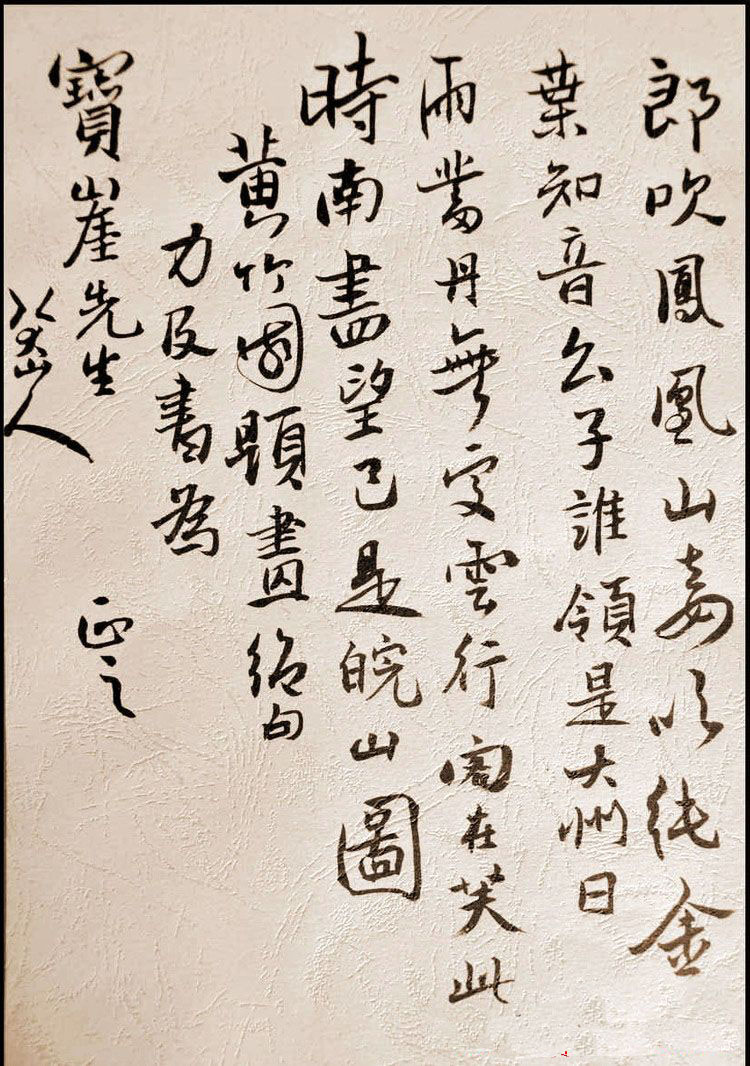 郎吹鳳凰山妾以純金
葉知音公子誰領是大州日
雨當丹無處雲行閣在芙此
時南盡望已是皖山圖
黃竹園題畫絕句
力及書為
寶崖先生 正之
八大山人